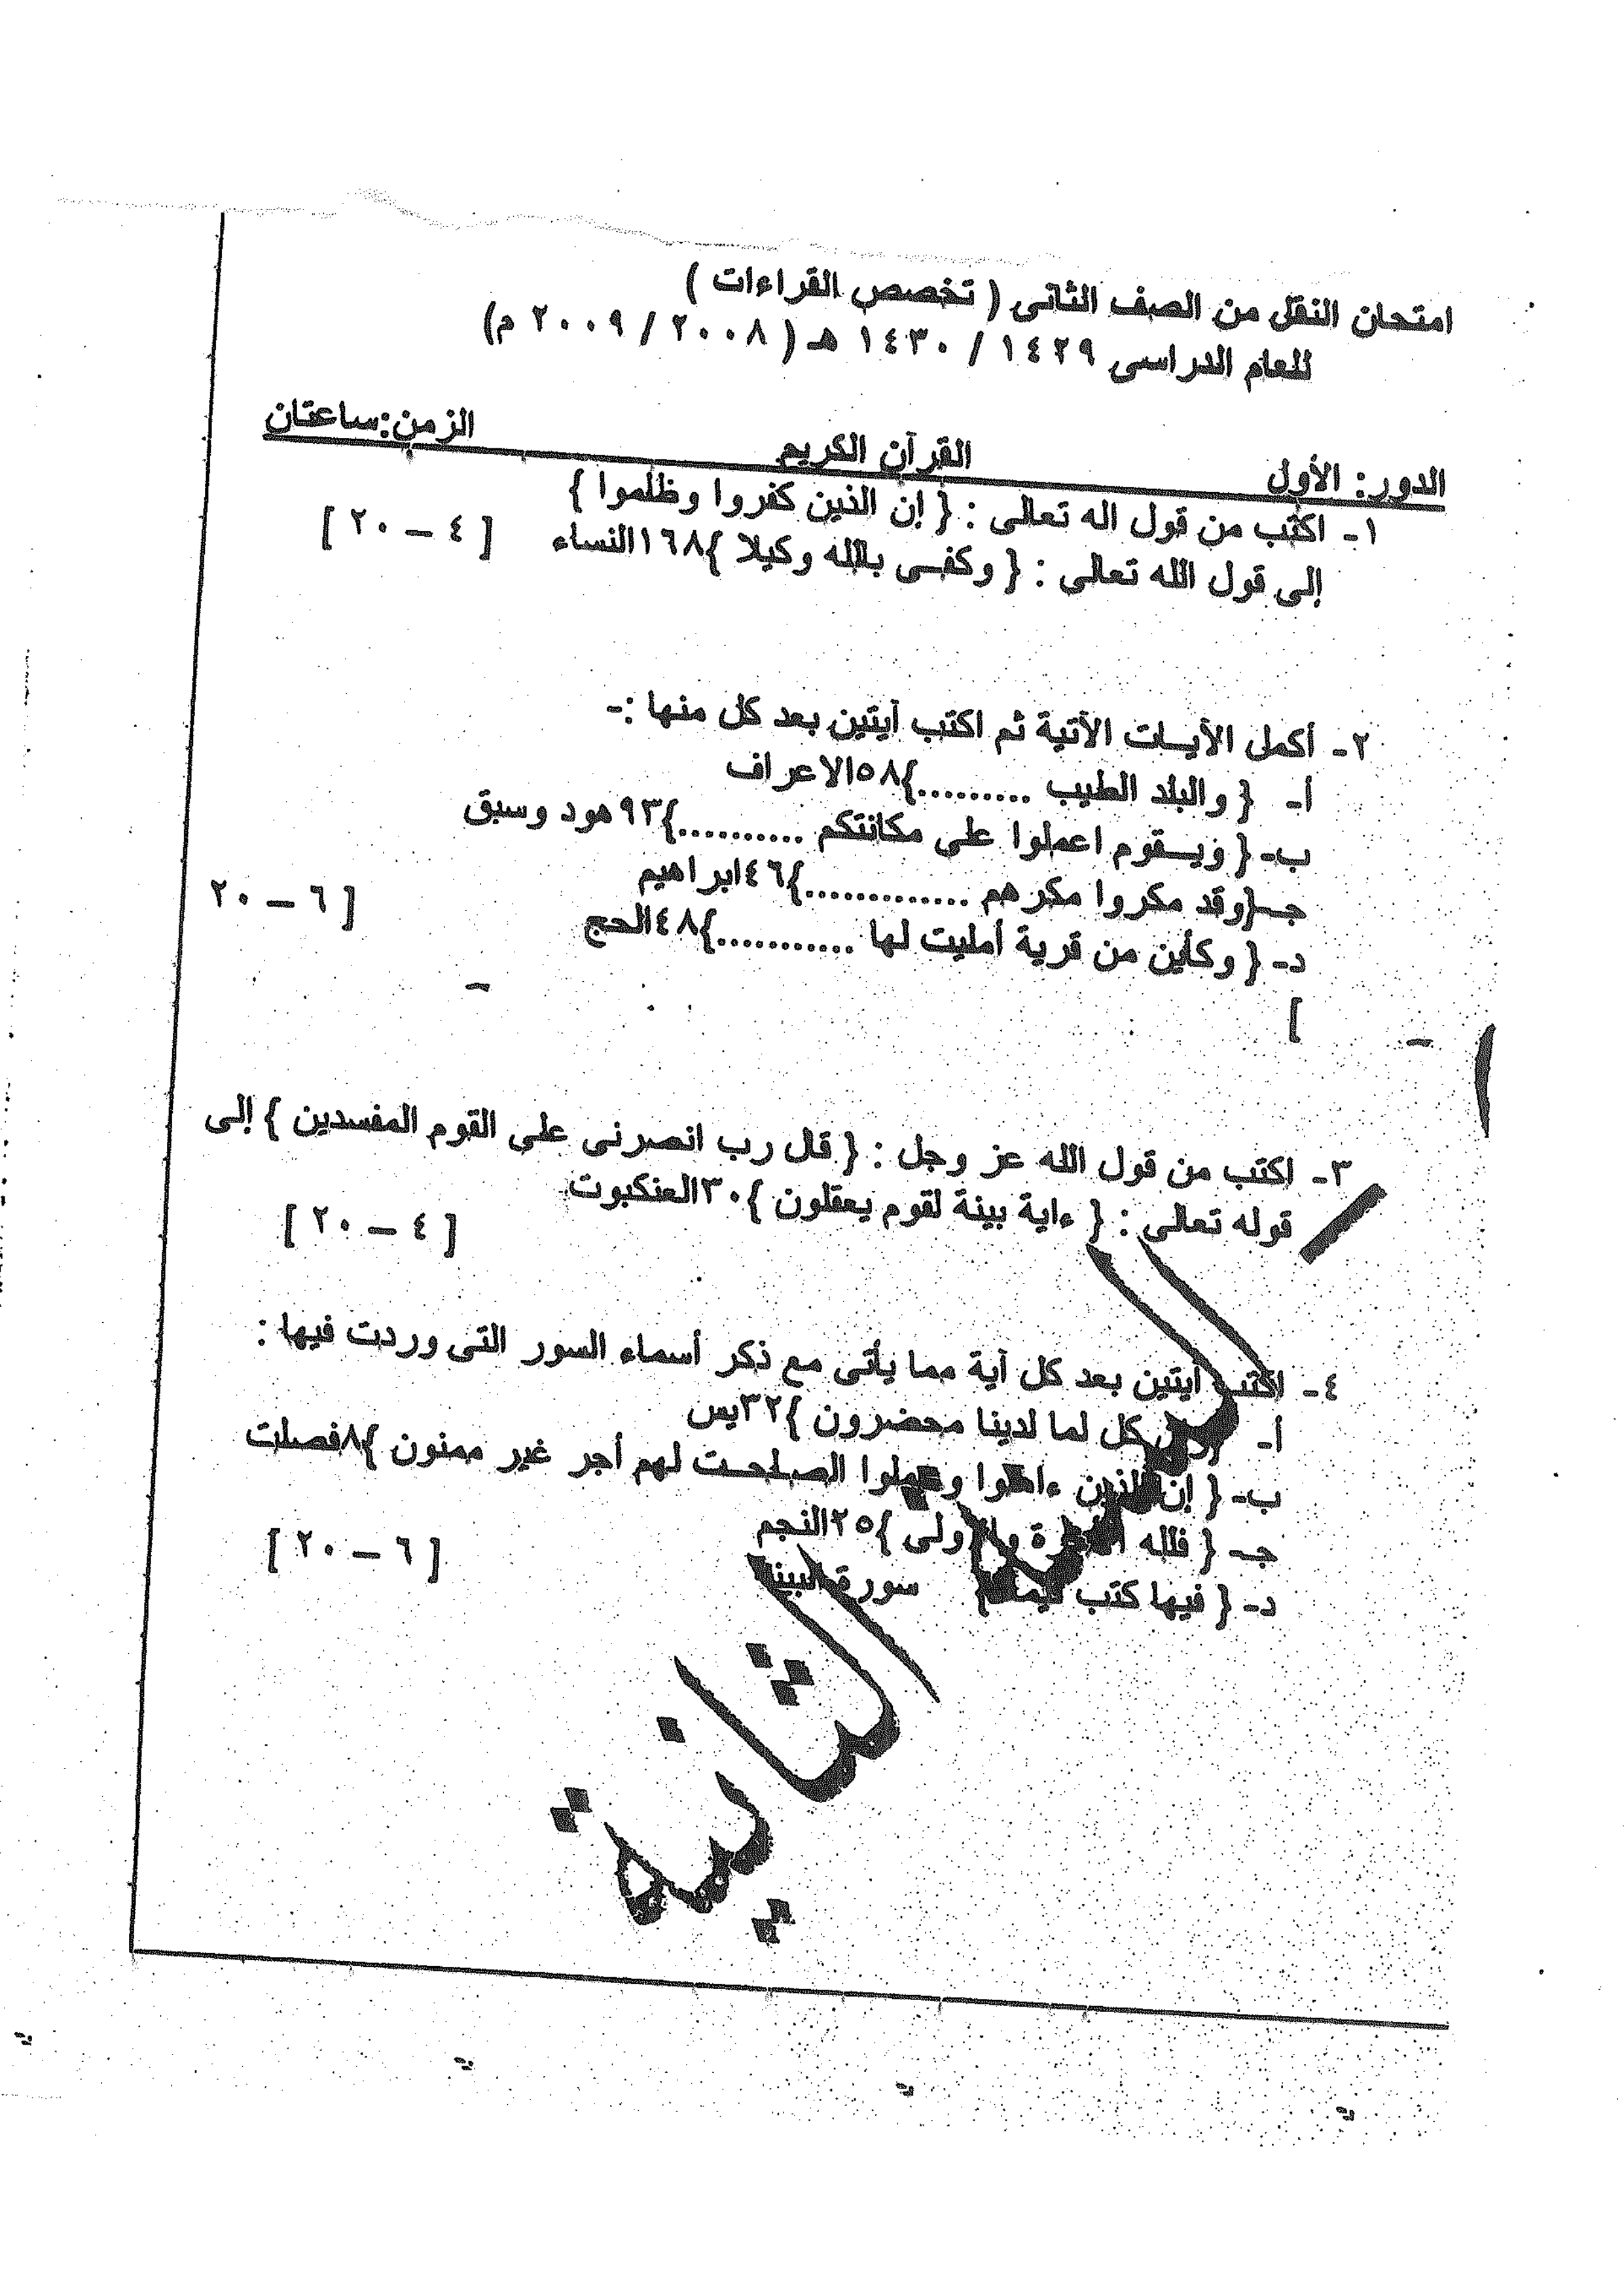 امتحان النقل من الصف الثانى ( تخصص القراءات )
للعام الدراسى ١٤٢٩ / ١٤٣٠ هـ ( ٢٠٠٨ / ٢٠٠٩ م)
الدور: الأول القرآن الكريم الزمن:ساعتان
١- اكتب من قول اله تعالى : { إن الذين كفروا وظلموا }
إلى قول الله تعالى : { وكفـى بالله وكيلا }١٦٨النساء [ ٤ – ٢٠ ]
٢- أكمل الآيـات الآتية ثم اكتب آيتين بعد كل منها :-
أ- { والبلد الطيب .........}٥٨الاعراف
ب- { ويـقوم اعملوا على مكانتكم ..........}٩٣هود وسبق
جـ-{وقد مكروا مكرهم .............}٤٦ابراهيم
د- { وكأين من قرية أمليت لها ...........}٤٨الحج [ ٦ – ٢٠
]
٣- اكتب من قول الله عز وجل : { قال رب انصرنى على القوم المفسدين } إلى
قوله تعالى : { ءاية بينة لقوم يعقلون }٣٠العنكبوت [ ٤ – ٢٠ ]
٤- اكتب آيتين بعد كل آية مما يأتى مع ذكر أسماء السور التى وردت فيها :
أ- كل لما لدينا محضرون }٣٢يس
ب- { إن الذين ءامنوا وعملوا الصـلحـت لهم أجر غير ممنون }٨فصلت
جـ- { فلله الآخرة والأولى }٢٥النجم
د- { فيها كتب قيمة } سورة البينة [ ٦ – ٢٠ ]
الثانية